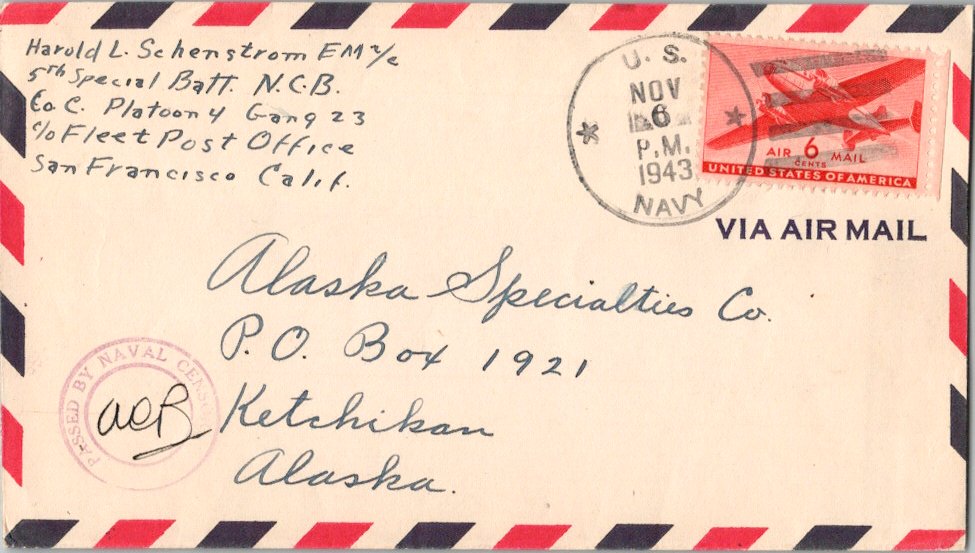 Harold L. Schenstrom EM 2/c
5th Special Batt. N.C.B.
Co C. Platoon 4 Gang 23
c/o Fleet Post Office
San Francisco Calif.
U. S.
NOV
6
P.M.
1943
NAVY
AIR 6 MAIL
CENTS
UNITED STATES OF AMERICA
VIA AIR MAIL
Alaska Specialties Co.
P.O. Box 1921
Ketchikan
Alaska.
PASSED BY NAVAL CENSOR
ACB